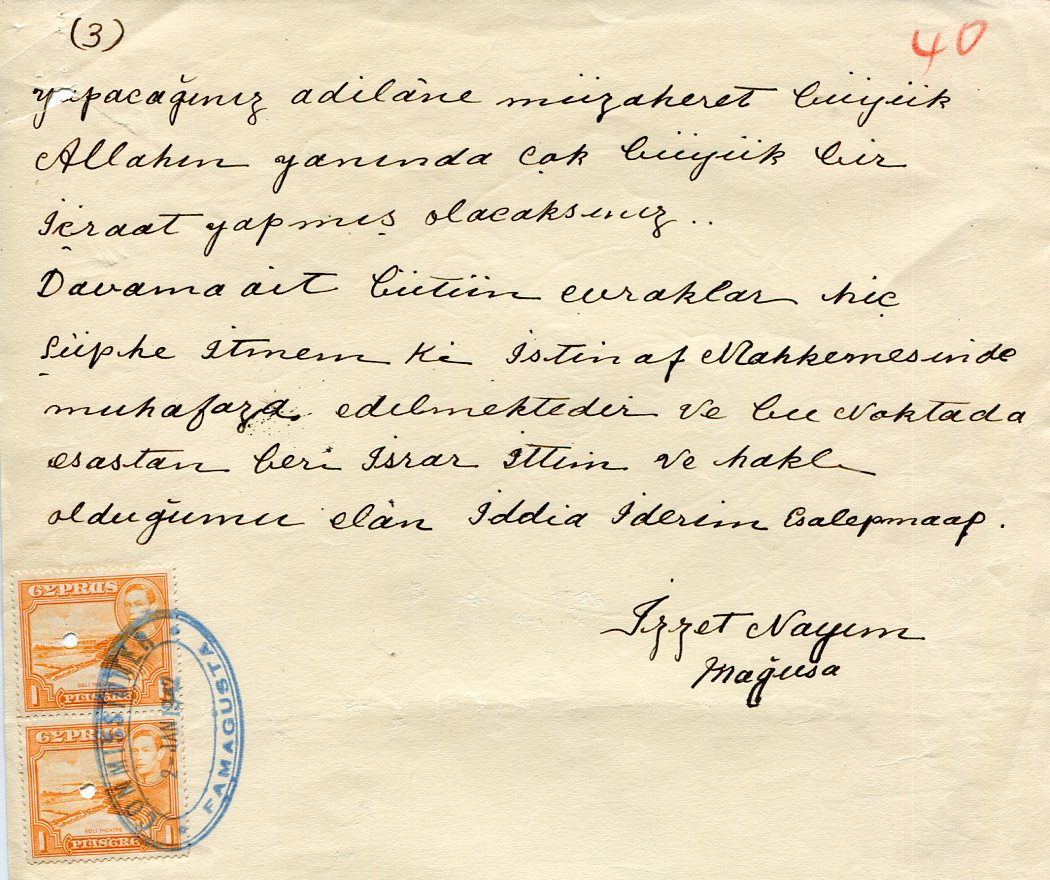 (3)
40
yapacağınız adilâne müzaheret büyük
Allahın yanında çok büyük bir
İçraat yapmış olacaksınız..
Davama âit bütün evraklar hiç
Şüphe itmem ki İstinaf Mahkemesinde
muhafaza edilmektedir ve bu Noktada
esastan beri İsrar İttim ve haklı
olduğumu elân İddia İderim Esalepmaap.
İzzet Nayım
Mağusa
CYPRUS
SOLI THEATRE
1 PIASTRE 1
CYPRUS
SOLI THEATRE
1 PIASTRE 1
COMMISSIONER
2 - JAN 1942
FAMAGUSTA